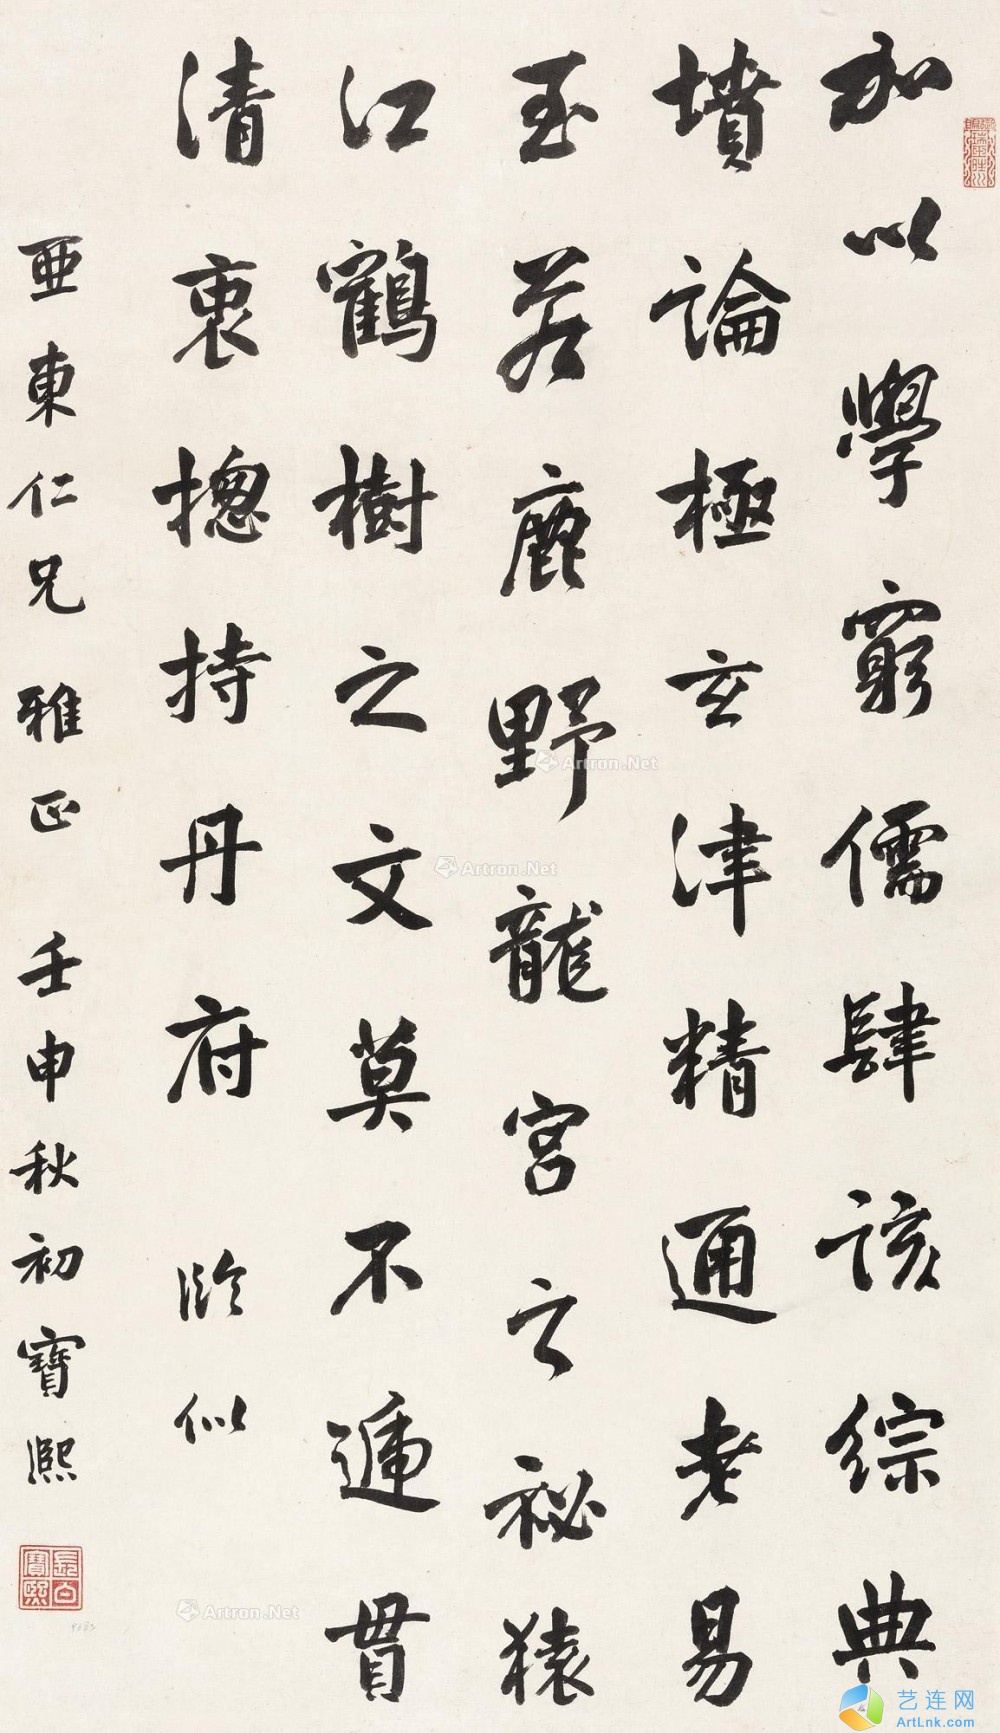 加以學窮儒肆該綜典
墳論極玄津精通老易
至若鹿野龍宮之秘猿
江鶴樹之文莫不遞貫
清衷摠持丹府 臨似
亞東仁兄雅正 壬申秋初寶熙
長白寶熙
Artron.Net
Artron.Net
Artron.Net
Artron.Net
艺连网
ArtLnk.com